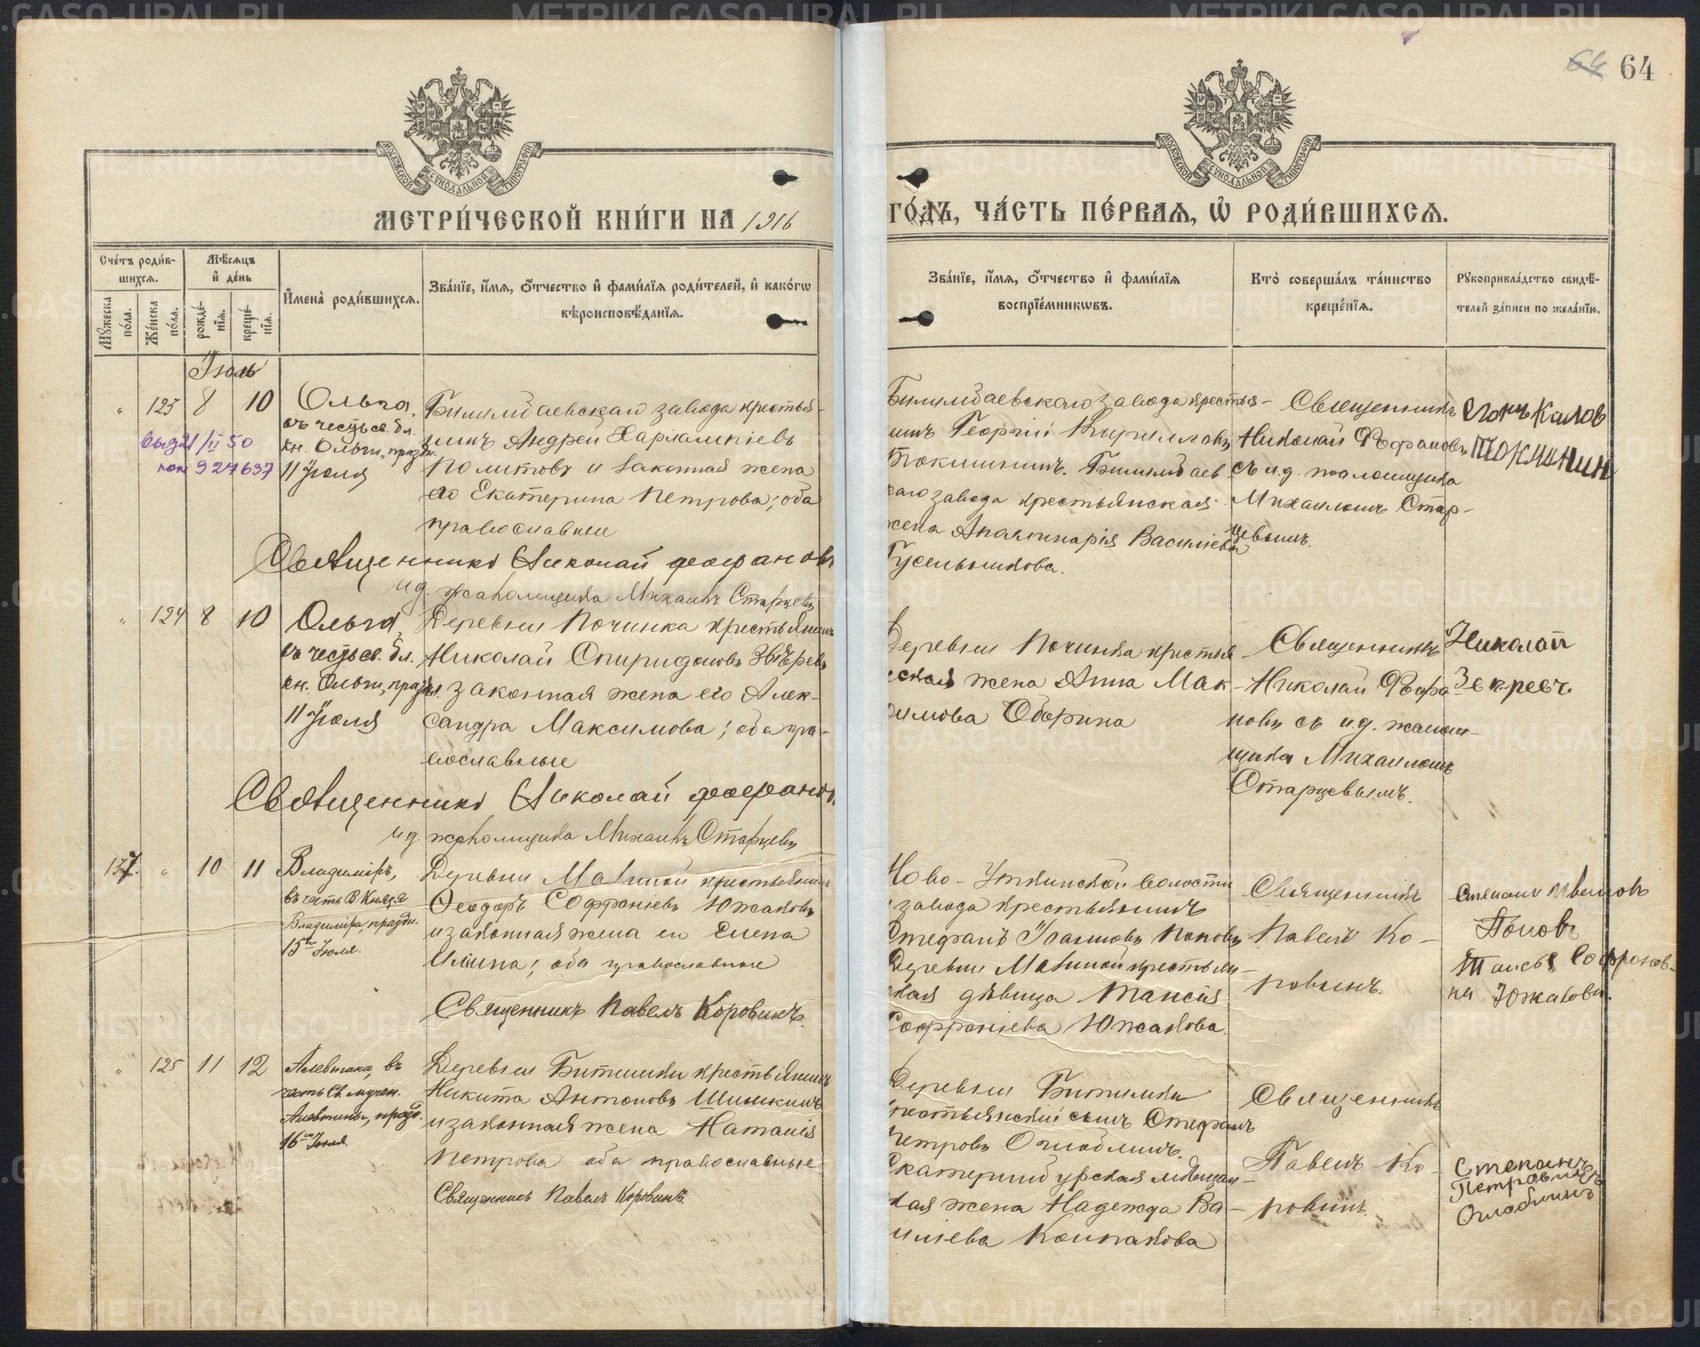 64 64
МОСКОВСКОЙ СѴНОДАЛЬНОЙ ТИПОГРАФІИ
МОСКОВСКОЙ СѴНОДАЛЬНОЙ ТИПОГРАФІИ
МЕТРИ́ЧЕСКОЙ КНИ́ГИ НА 1916
ГО́ДЪ, ЧА́СТЬ ПЕ́РВАЯ, Ѡ҆ РОДИ́ВШИХСЯ.
Сче́тъ роди́в-
шихся.
Мꙋжеска по́ла.
Же́нска по́ла.
Мѣ́сяцъ
и҆ де́нь
рожде́-
нїя.
креще́-
нїя.
И҆мена̀ роди́вшихся.
Зва́нїе, и҆́мя, ѻ҆́тчество и҆ фами́лїя роди́телей, и҆ како́гѡ
вѣроисповѣ́данїя.
Зва́нїе, и҆́мя, ѻ҆́тчество и҆ фами́лїя
воспрїе́мникѡвъ.
Кто̀ соверша́лъ та́инство
креще́нїя.
Рꙋкоприкла́дство свидѣ́-
телей за́писи по жела́нїю.
Іюль
" 123 8 10
Ольга,
въ честь св. бл.
кн. Ольги, празд.
11 Іюля
Билимбаевскаго завода крестья-
нинъ Андрей Харлампіевъ
Политовъ и законная жена
его Екатерина Петрова; оба
православные
Священникъ Николай Феофановъ
и.д. псаломщика Михаилъ Старцевъ
Билимбаевскаго завода крестья-
нинъ Георгій Кирилловъ
Токминнинъ. Билимбаев
скаго завода крестьянская
жена Аполлинарія Васильева
Гусельникова.
Священникъ
Николай Феофановъ
съ и.д. псаломщика
Михаиломъ Стар-
цевымъ.
" 124 8 10
Ольга,
въ честь св. бл.
кн. Ольги, празд.
11 Іюля
Деревни Починка крестьянинъ
Николай Спиридоновъ Звѣревъ
и законная жена его Алек-
сандра Максимова; оба пра-
вославные
Священникъ Николай Феофановъ
и.д. псаломщика Михаилъ Старцевъ
Деревни Починка крестьян-
ская жена Анна Мак-
симова Оборина
Священникъ
Николай Феофа-
новъ съ и.д. псалом-
щика Михаиломъ
Старцевымъ.
Николай
Зверевъ
137. " 10 11
Владиміръ,
въ честь В. Князя
Владиміра, праздн.
15го Іюля.
Деревни Матиной крестьянинъ
Ѳеодоръ Софроніевъ Южаковъ
и законная жена его Елена
Ильина; оба православные
Священникъ Павелъ Коровинъ.
Ново-Уткинской волости
завода крестьянинъ
Стефанъ Іоанновъ Поповъ
Деревни Матиной крестьян-
ская дѣвица Таисія
Софроніева Южакова.
Священникъ
Павелъ Ко-
ровинъ.
Поповъ
Таисья Софронов-
на Южакова.
" 125 11 12
Алевтина, въ
честь Св. мучен.
Алевтины, празд.
16го Іюля.
Деревни Битимки крестьянинъ
Никита Антоновъ Шишкинъ
и законная жена Наталія
Петрова оба православные
Священникъ Павелъ Коровинъ
Деревни Битимки
крестьянскій сынъ Стефанъ
Петровъ Оглоблинъ.
Екатеринбургская мѣщан-
ская жена Надежда Ва-
сильева Колпакова
Священникъ
Павелъ Ко-
ровинъ.
Степанъ
Петровичъ
Оглоблинъ
METRIKI.GASO-URAL.RU